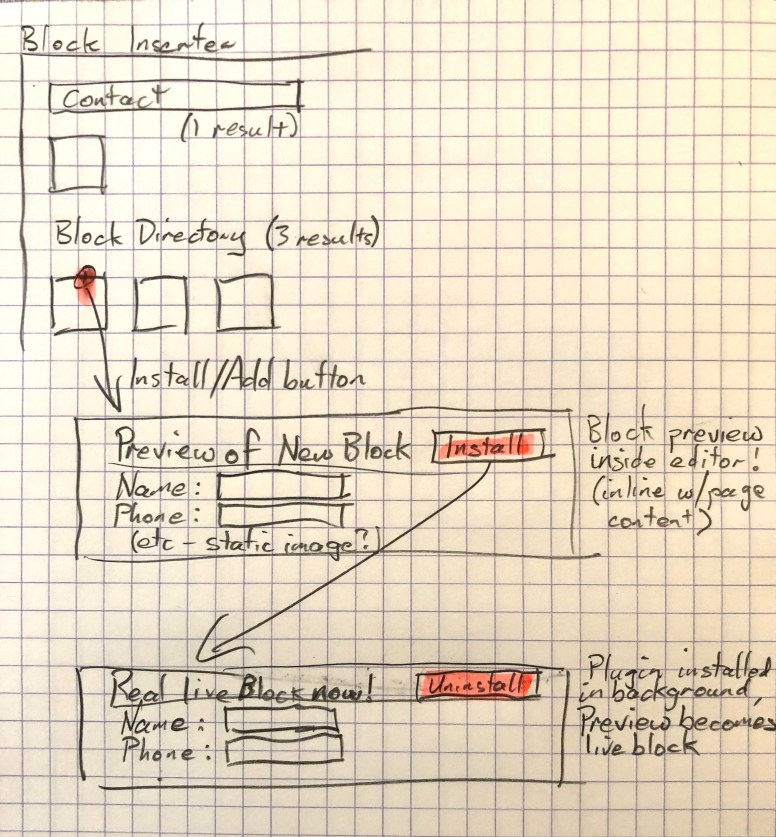 Block Inserter
Contact
(1 result)
Block Directory (3 results)
Install/Add button
Preview of New Block
Install
Name:
Phone:
(etc - static image?)
Block preview
inside editor!
(inline w/page
content)
Real live Block now!
Uninstall
Name:
Phone:
Plugin installed
in background,
Preview becomes
live block